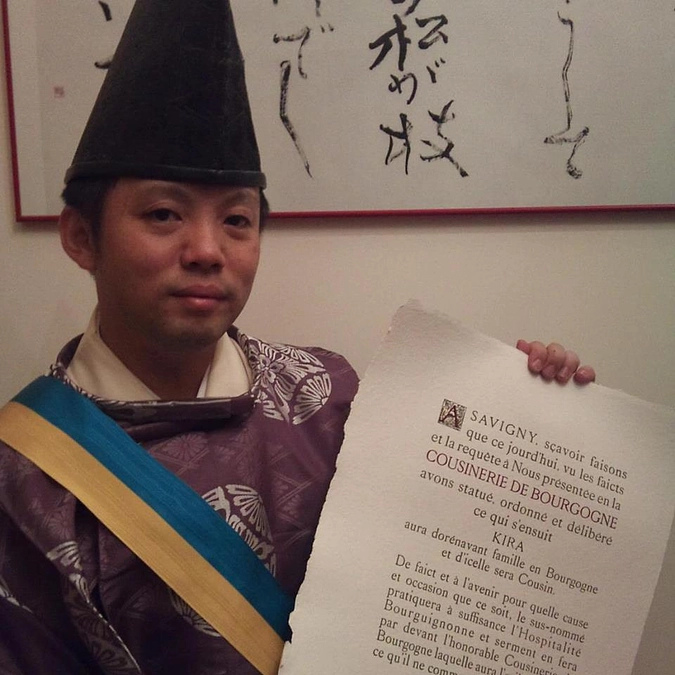 松が枝
A SAVIGNY, sçavoir faisons
que ce jourd'hui, vu les faicts
et la requête à Nous présentée en la
COUSINERIE DE BOURGOGNE
avons statué, ordonné et délibéré
ce qui s'ensuit
KIRA
aura dorénavant famille en Bourgogne
et d'icelle sera Cousin.
De faict et à l'avenir pour quelle cause
et occasion que ce soit, le sus-nommé
pratiquera à suffisance l'Hospitalité
Bourguignonne et serment en fera
par devant l'honorable Cousinerie
Bourgogne laquelle aura
ce qu'il ne